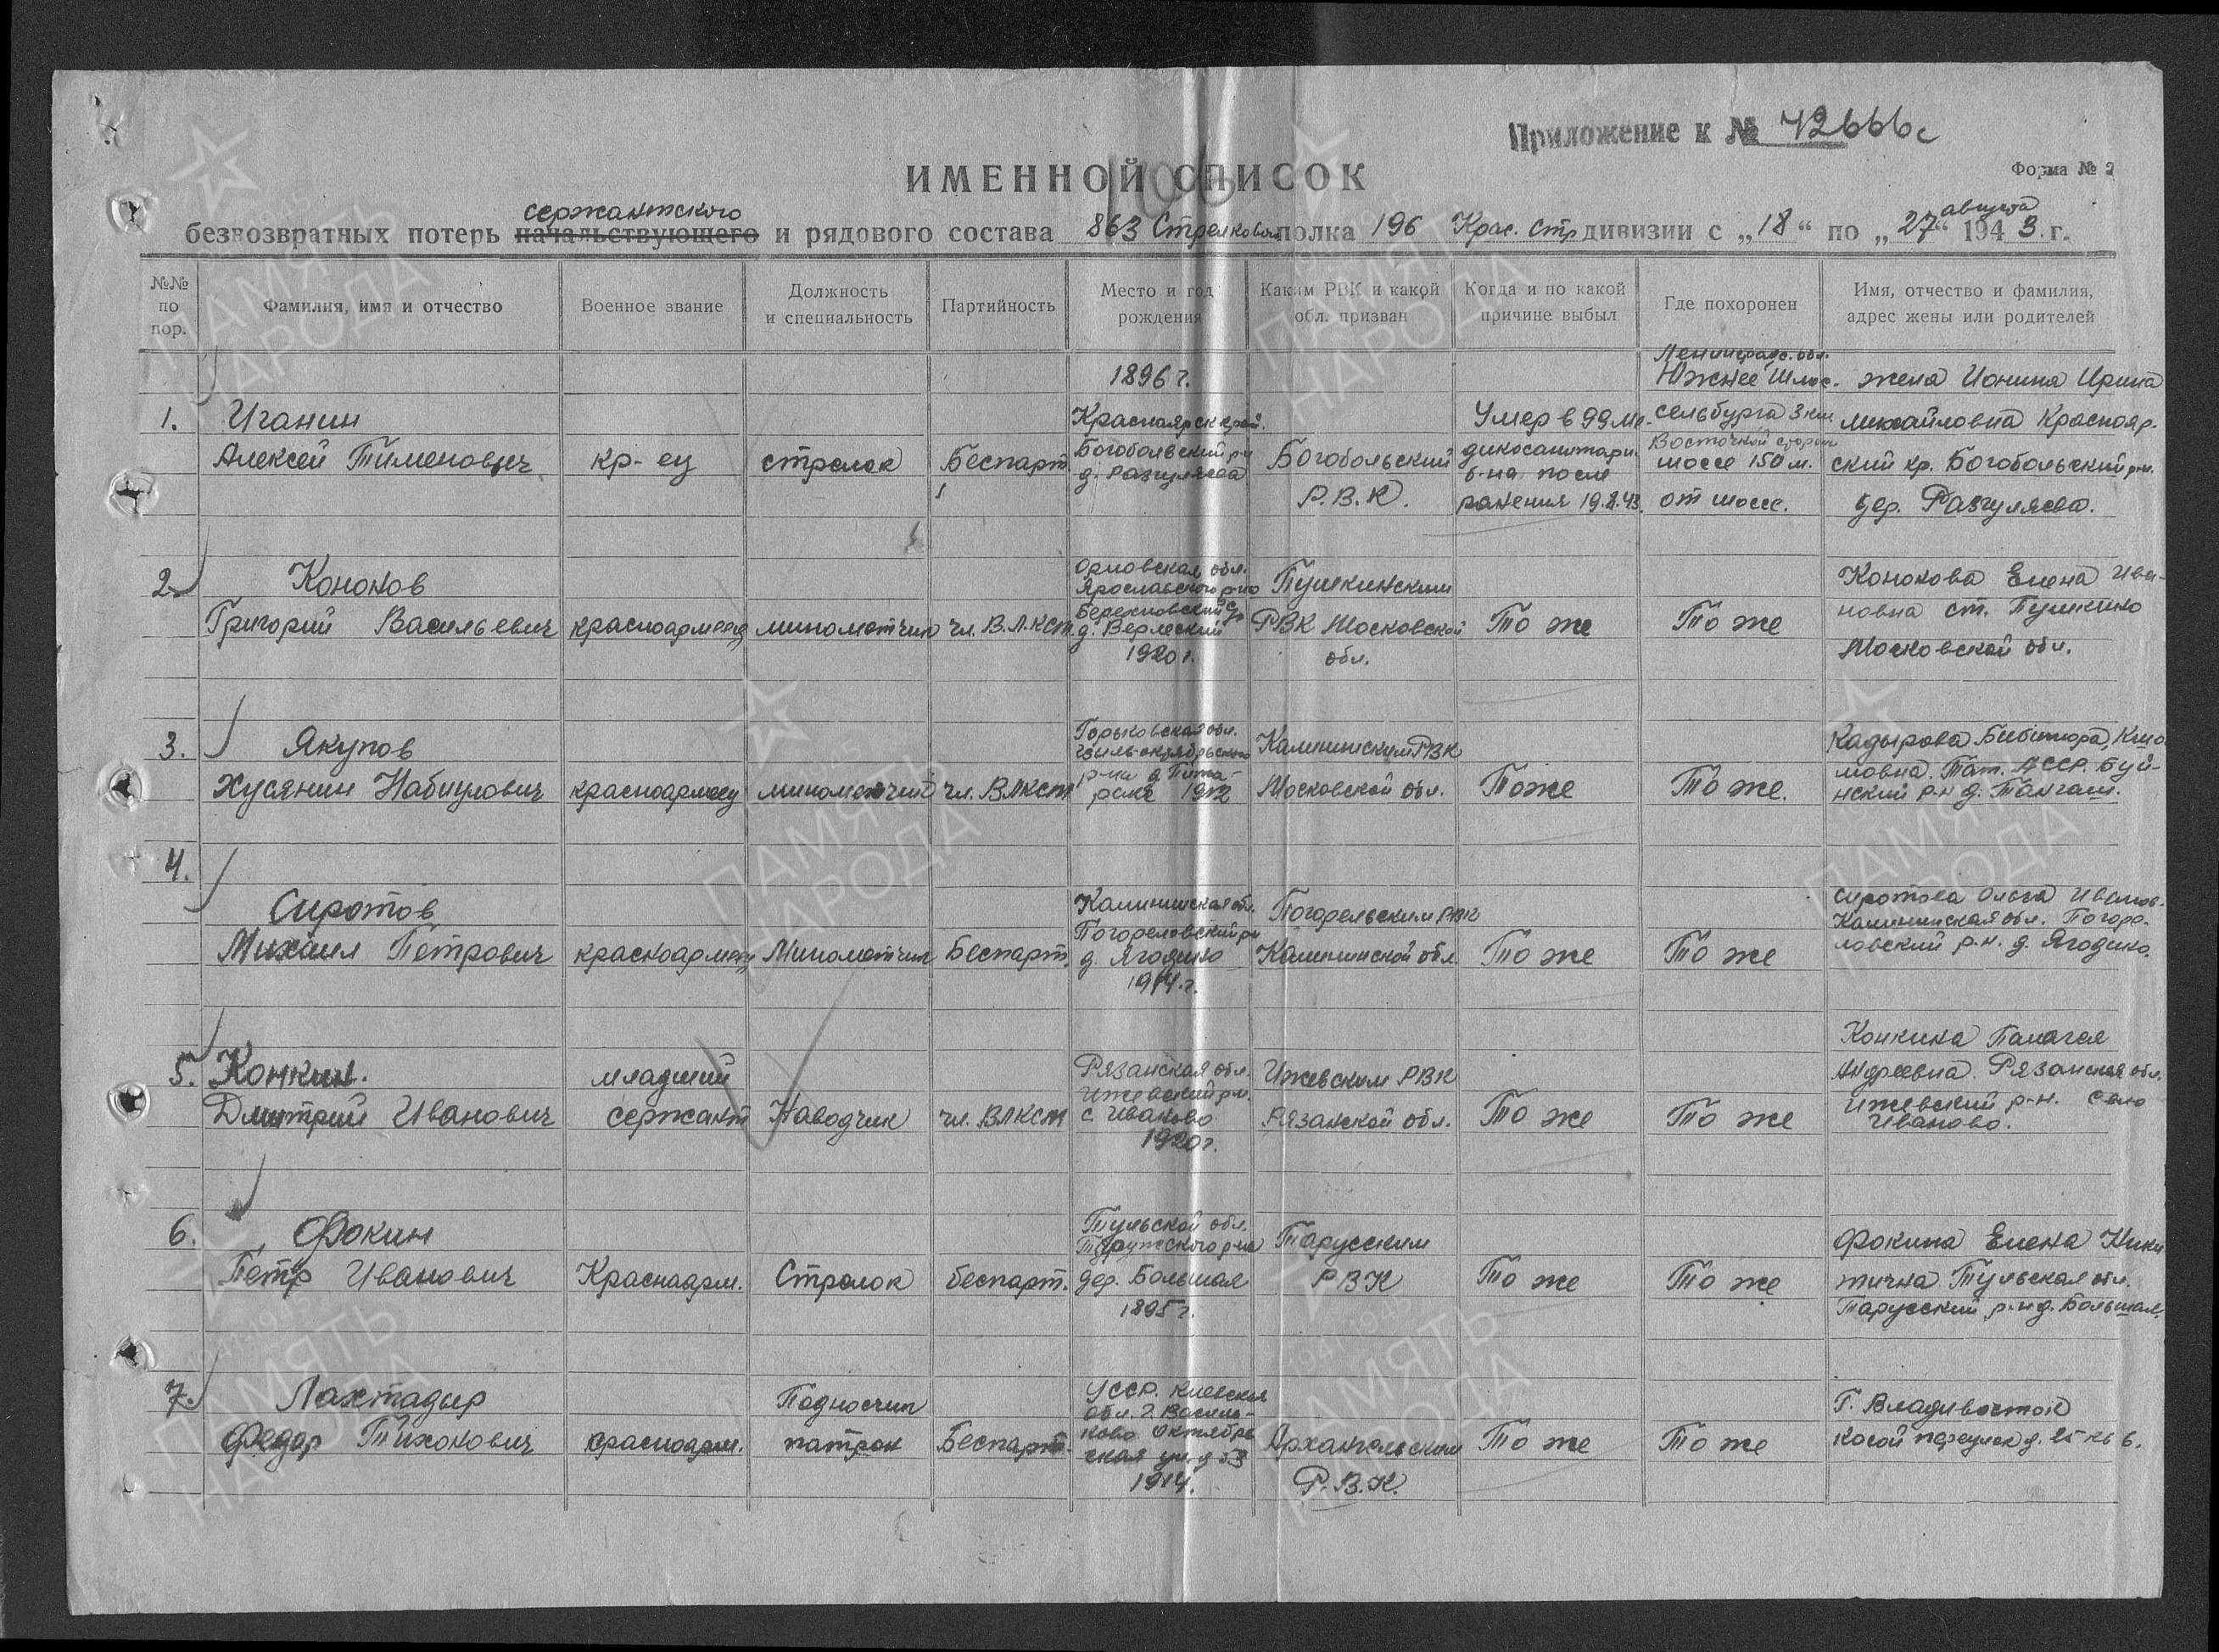 Приложение к № 42666с
ИМЕННОЙ СПИСОК
Форма № 2
сержантского
августа
безвозвратных потерь начальствующего и рядового состава 863 Стрелкового полка 196 Крас. Стр дивизии с „18“ по „27“ 1943 г.
№№ по пор.
Фамилия, имя и отчество
Военное звание
Должность и специальность
Партийность
Место и год рождения
Каким РВК и какой обл. призван
Когда и по какой причине выбыл
Где похоронен
Имя, отчество и фамилия, адрес жены или родителей
1.
Иганин
Алексей Тименович
кр-ец
стрелок
Беспарт.
1896 г.
Красноярск край.
Богобольский р-н
д. Разгуляева
Богобольский
Р.В.К.
Умер в 99 ме-
дикосанитарн.
б-на после
ранения 19.8.43.
Ленинградс. обл.
Южнее Шлис-
сельбурга 3 км
Восточной сторон
шоссе 150 м.
от шоссе.
жена Ионина Ирина
михайловна Краснояр-
ский кр. Богобольский р-н.
дер. Разгуляева.
2.
Кононов
Григорий Васильевич
красноармеец
минометчик
чл. В.Л.КСМ.
Орловская обл.
Ярославского р-на
Березновский с/с
1920 г.
Пушкинским
РВК Московской
обл.
То же
То же
Кононова Елена Ива-
новна ст. Пушкино
Московской обл.
3.
Якупов
Хусянин Набиулович
красноармеец
минометчик
чл. ВЛКСМ
Горьковская обл.
Кзыль-октябрьского
р-на д. Пита-
1912
Калининским РВК
Московской обл.
Тоже
То же.
Кадырова
мовна. Тат. АССР. Буи-
нский р-н д.
4.
Сиротов
Михаил Петрович
красноармеец
Минометчик
Беспарт.
Калининская обл.
Погореловский р-н
д. Ягодино
1914 г.
Погорельским РВК
Калининской обл.
То же
То же
Сиротова Ольга Иванов.
Калининская обл. Погоре-
ловский р-н. д. Ягодино.
5.
Конкин.
Дмитрий Иванович
младший
сержант
Наводчик
чл. ВЛКСМ
Рязанская обл.
Ижевский р-н.
с Иваново
1920 г.
Ижевским РВК
Рязанской обл.
То же
То же
Конкина Палагея
Андреевна Рязанская обл.
Ижевский р-н. село
Иваново.
6.
Фокин
Петр Иванович
Красноарм.
Стрелок
беспарт.
Тульской обл.
Тарусского р-на
дер. Большая
1895 г.
Тарусским
РВК
То же
То же
Фокина Елена Ники
тична Тульская обл.
Тарусский р-н д. Большая.
7.
Лахтадыр
Федор Тихонович
красноарм.
Подносчик
патрон
Беспарт.
УССР. Киевская
обл. г. Василь-
ково Октябрь
ская ул. д 53
1914.
Архангельским
Р.В.К.
То же
То же
Г. Владивосток
Косой переулок д. 25 кв 6.
ПАМЯТЬ НАРОДА